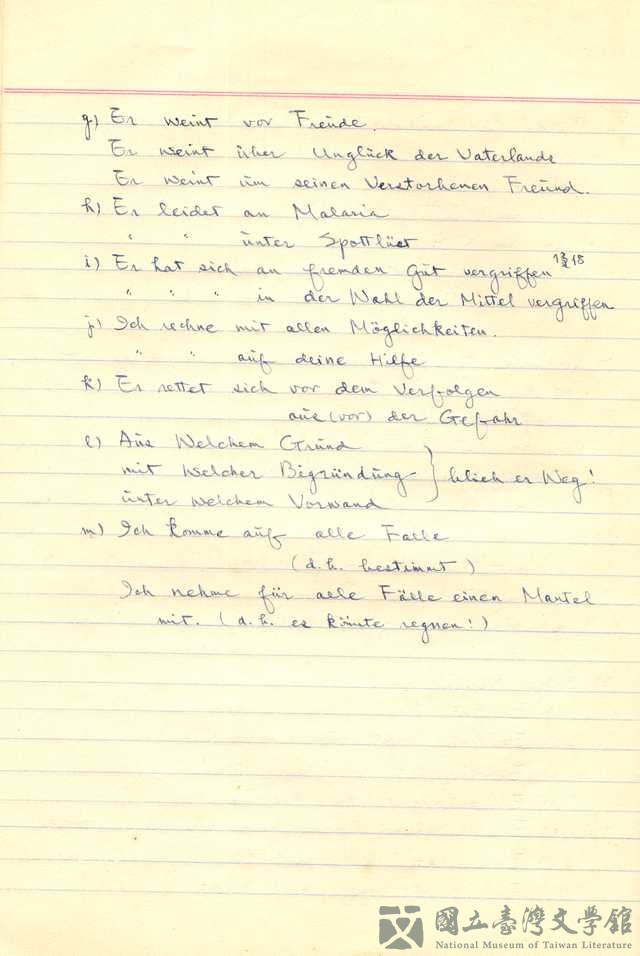 g) Er weint vor Freude.
Er weint über Unglück der Vaterlande
Er weint um seinen Verstorbenen Freund.
h) Er leidet an Malaria
" " unter Spottlust
i) Er hat sich an fremden Gut vergriffen 18
" " " in der Wahl der Mittel vergriffen
j) Ich rechne mit allen Möglichkeiten.
" " auf deine Hilfe
k) Er rettet sich vor dem Verfolgen
aus (vor) der Gefahr
l) Aus Welchem Grund
mit Welcher Begründung } blieb er Weg!
unter welchem Vorwand
m) Ich komme auf alle Falle
(d.h. bestimmt)
Ich nehme für alle Fälle einen Mantel
mit. (d.h. es könnte regnen!)
國立臺灣文學館
National Museum of Taiwan Literature